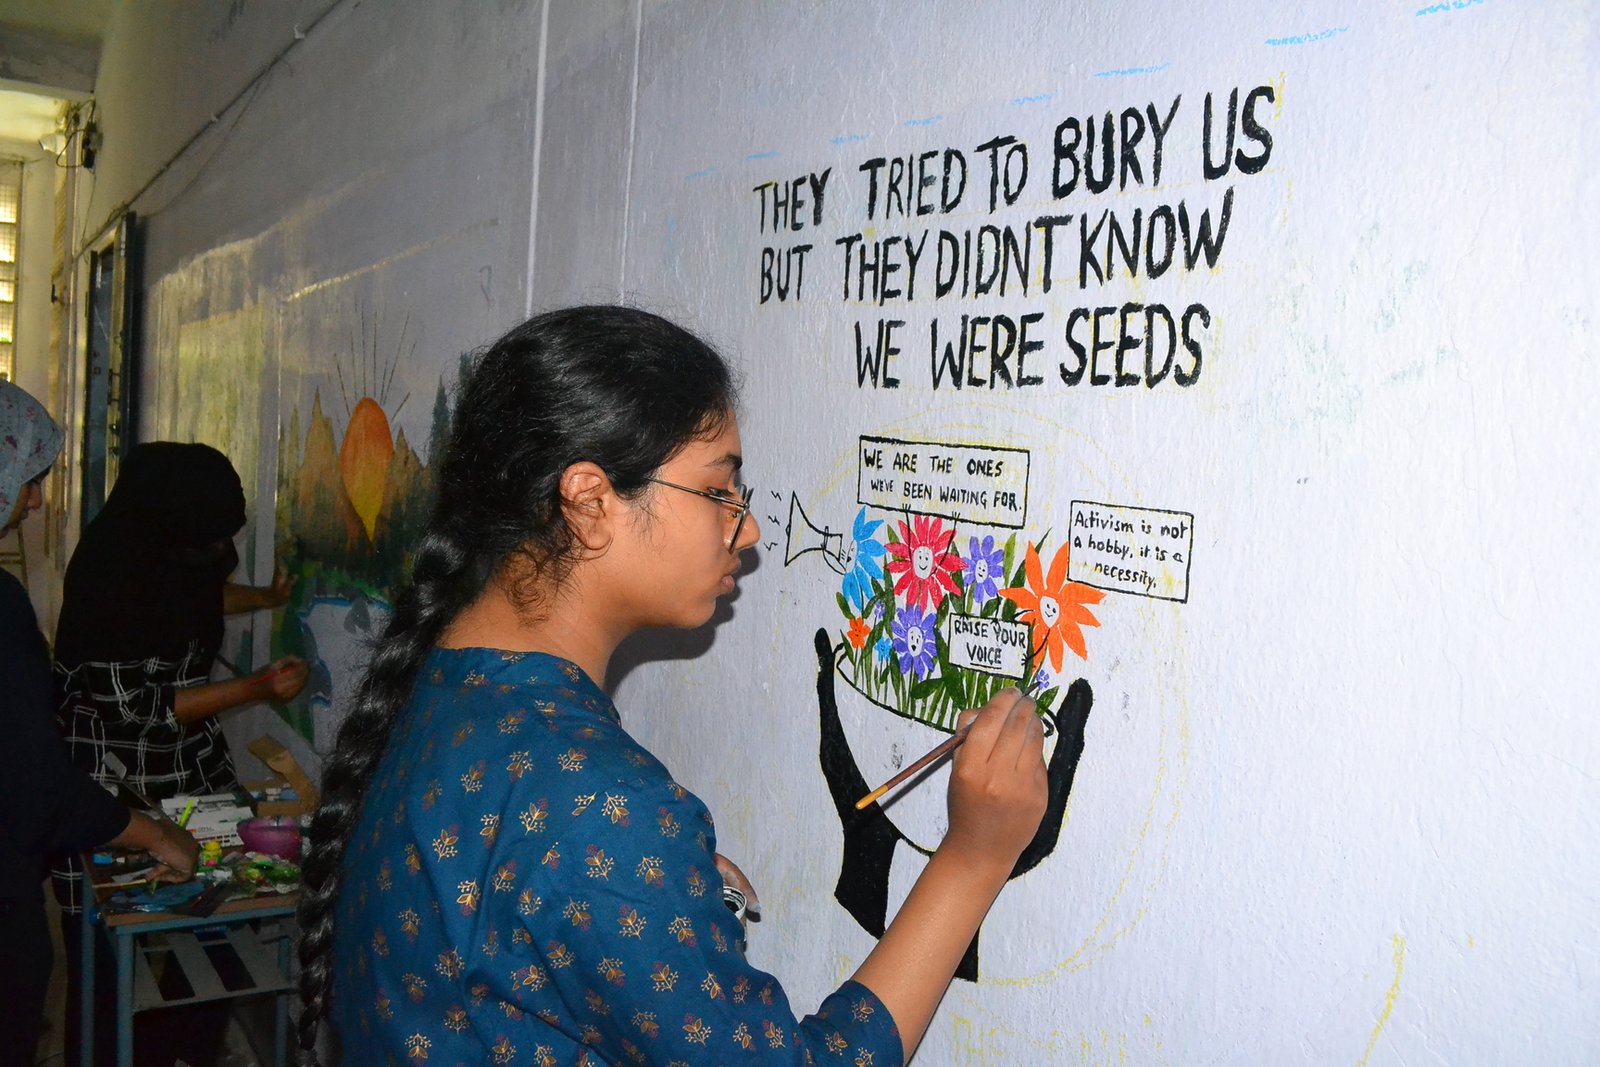 THEY TRIED TO BURY US
BUT THEY DIDNT KNOW
WE WERE SEEDS
WE ARE THE ONES
WE'VE BEEN WAITING FOR.
Activism is not
a hobby, it is a
necessity.
RAISE YOUR
VOICE